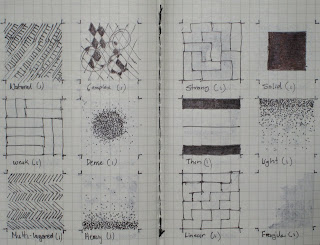 Natural (1)
Complex (1)
Strong (1)
Solid (1)
Weak (1)
Dense (1)
Thin (1)
Light (1)
Multi-layered (1)
Heavy (1)
Linear (1)
Fragile (1)